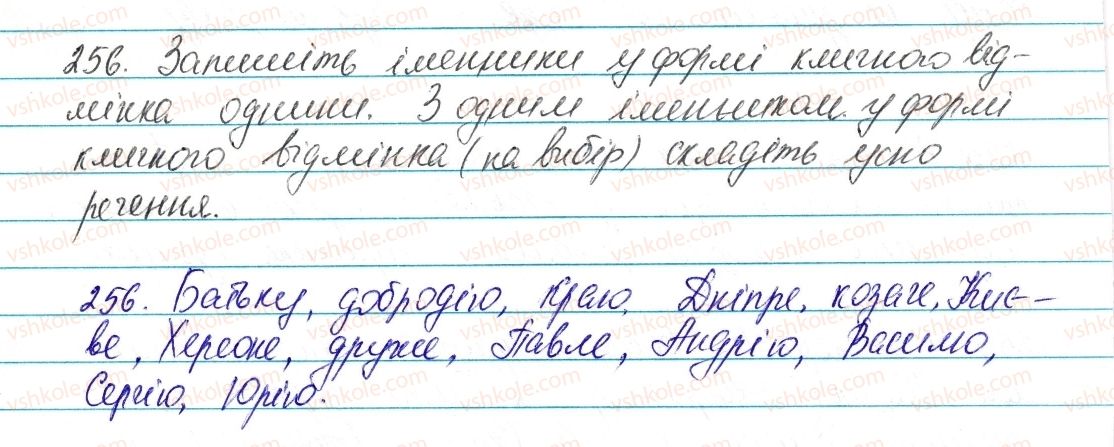 256. Запишіть іменники у формі кличного від-
мінка однини. З одним іменником у формі
кличного відмінка (на вибір) складіть усно
речення.
256. Батьку, добродію, краю, Дніпре, козаче, Киє-
ве, Херсоне, друже, Павле, Андрію, Василю,
Сергію, Юрію.